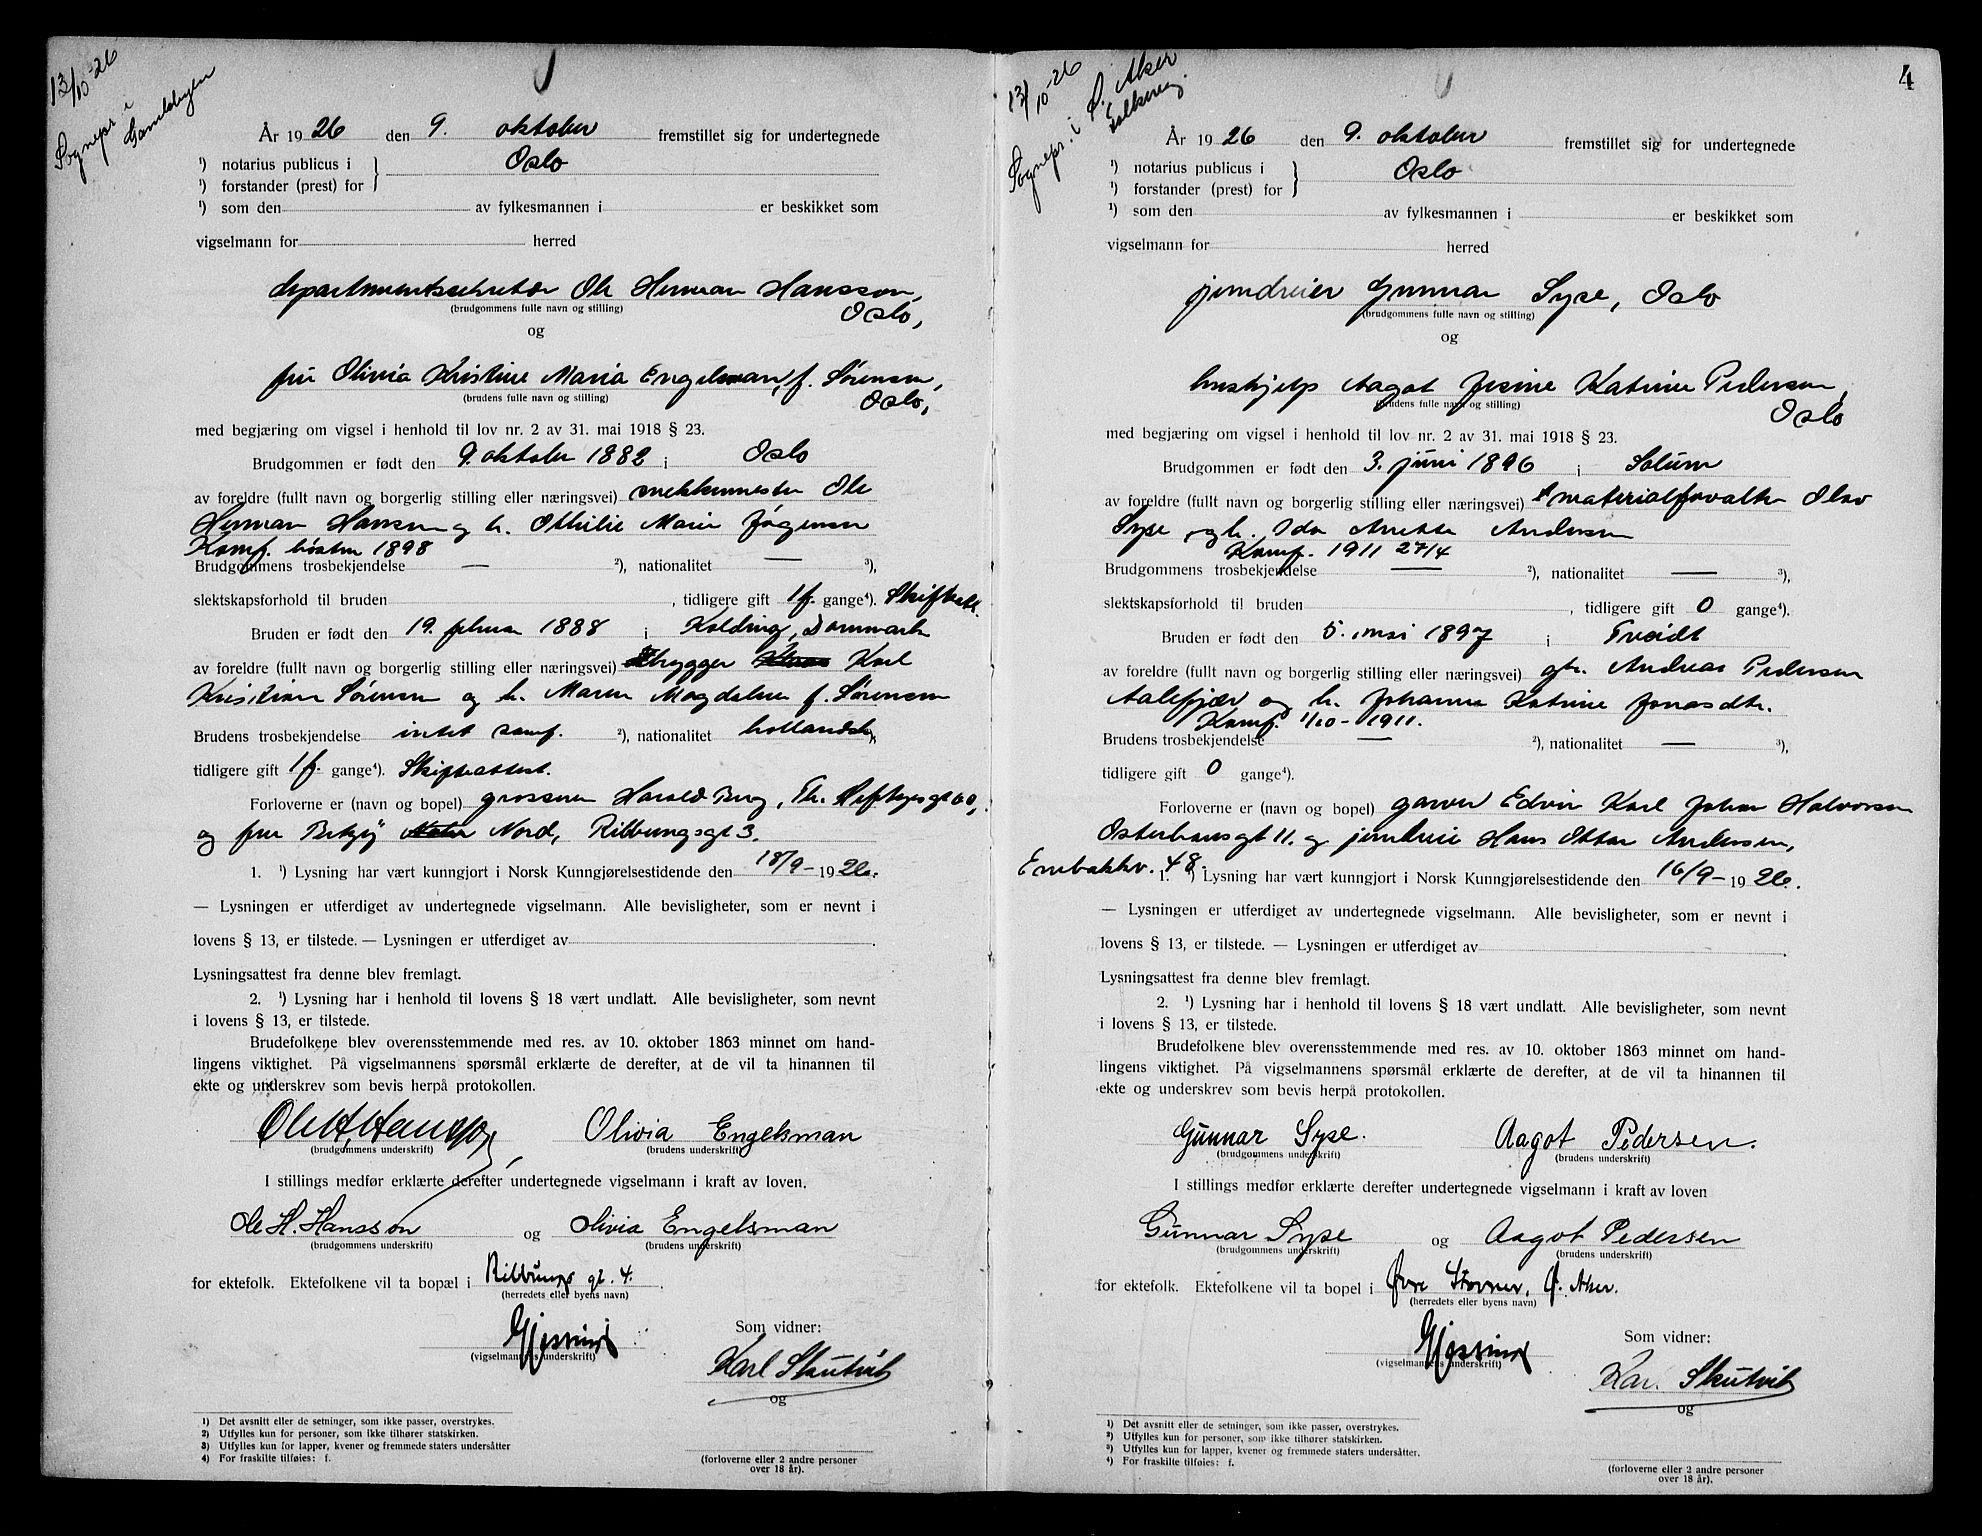 13/10-26
Sognepr. i
Gamlebyen
År 1926 den 9. oktober fremstillet sig for undertegnede
¹) notarius publicus i } Oslo
¹) forstander (prest) for
¹) som den av fylkesmannen i er beskikket som
vigselmann for herred
departmentssekretær Ole Herman Hansson,
(brudgommens fulle navn og stilling)
Oslo,
og
fru Olivia Kristine Maria Engelsman, f. Sørensen,
(brudens fulle navn og stilling)
Oslo,
med begjæring om vigsel i henhold til lov nr. 2 av 31. mai 1918 § 23.
Brudgommen er født den 9. oktober 1882 i Oslo
av foreldre (fullt navn og borgerlig stilling eller næringsvei) snekkermester Ole
Herman Hansen og h. Othilie Marie Jørgensen
Konf. høsten 1898
Brudgommens trosbekjendelse — ²), nationalitet — ³),
slektskapsforhold til bruden , tidligere gift 1 f. gange⁴). Skifteatt.
Bruden er født den 19. februar 1888 i Kolding, Danmark
av foreldre (fullt navn og borgerlig stilling eller næringsvei) brygger Karl
Kristian Sørensen og h. Maren Magdalene f. Sørensen
Brudens trosbekjendelse intet samf. ²), nationalitet hollandsk ³),
tidligere gift 1 f. gange⁴). Skifteattest.
Forloverne er (navn og bopel) grosserer Harald Berg, Th. Heftyesgt 60,
og fru Betzy Nord, Rilbungsgt 3.
1. ¹) Lysning har vært kunngjort i Norsk Kunngjørelsestidende den 18/9 – 1926.
— Lysningen er utferdiget av undertegnede vigselmann. Alle bevisligheter, som er nevnt i
lovens § 13, er tilstede. — Lysningen er utferdiget av .
Lysningsattest fra denne blev fremlagt.
2. ¹) Lysning har i henhold til lovens § 18 vært undlatt. Alle bevisligheter, som nevnt
i lovens § 13, er tilstede.
Brudefolkene blev overensstemmende med res. av 10. oktober 1863 minnet om hand-
lingens viktighet. På vigselmannens spørsmål erklærte de derefter, at de vil ta hinannen til
ekte og underskrev som bevis herpå protokollen.
Ole H. Hansson, Olivia Engelsman
(brudgommens underskrift) (brudens underskrift)
I stillings medfør erklærte derefter undertegnede vigselmann i kraft av loven.
Ole H. Hansson og Olivia Engelsman
(brudgommens underskrift) (brudens underskrift)
for ektefolk. Ektefolkene vil ta bopæl i Rilbungs gt. 4.
(herredets eller byens navn)
Gjessing
(vigselmannens underskrift)
Som vidner:
Karl Skutvik
og
(forloverne eller 2 andre personer
over 18 år).
1) Det avsnitt eller de setninger, som ikke passer, overstrykes.
2) Utfylles kun for personer, som ikke tilhører statskirken.
3) Utfylles kun for lapper, kvener og fremmede staters undersåtter
4) For fraskilte tilføies: f.
4
13/10-26
Sognepr. i Ø. Aker
År 1926 den 9. oktober fremstillet sig for undertegnede
¹) notarius publicus i } Oslo
¹) forstander (prest) for
¹) som den av fylkesmannen i er beskikket som
vigselmann for herred
jerndreier Gunnar Syse, Oslo
(brudgommens fulle navn og stilling)
og
hushjelp Aagot Jesine Katrine Pedersen,
(brudens fulle navn og stilling)
Oslo
med begjæring om vigsel i henhold til lov nr. 2 av 31. mai 1918 § 23.
Brudgommen er født den 3. juni 1896 i Solum
av foreldre (fullt navn og borgerlig stilling eller næringsvei) materialforvalter Olav
Syse og h. Ida Anette Andersen
Konf. 1911 27/4
Brudgommens trosbekjendelse — ²), nationalitet — ³),
slektskapsforhold til bruden , tidligere gift 0 gange⁴).
Bruden er født den 5. mai 1897 i Tveidt
av foreldre (fullt navn og borgerlig stilling eller næringsvei) gbr. Andreas Pedersen
Aalefjær og h. Johanne Katrine Jonasdtr.
Konf. 1/10 – 1911.
Brudens trosbekjendelse — ²), nationalitet — ³),
tidligere gift 0 gange⁴).
Forloverne er (navn og bopel) garver Edvin Karl Johan Halvorsen
Osterhausgt 11. og jerndreier Hans Ottar Andersen,
Enebakkv. 48.
1. ¹) Lysning har vært kunngjort i Norsk Kunngjørelsestidende den 16/9 – 1926.
— Lysningen er utferdiget av undertegnede vigselmann. Alle bevisligheter, som er nevnt i
lovens § 13, er tilstede. — Lysningen er utferdiget av .
Lysningsattest fra denne blev fremlagt.
2. ¹) Lysning har i henhold til lovens § 18 vært undlatt. Alle bevisligheter, som nevnt
i lovens § 13, er tilstede.
Brudefolkene blev overensstemmende med res. av 10. oktober 1863 minnet om hand-
lingens viktighet. På vigselmannens spørsmål erklærte de derefter, at de vil ta hinannen til
ekte og underskrev som bevis herpå protokollen.
Gunnar Syse. Aagot Pedersen.
(brudgommens underskrift) (brudens underskrift)
I stillings medfør erklærte derefter undertegnede vigselmann i kraft av loven
Gunnar Syse og Aagot Pedersen
(brudgommens underskrift) (brudens underskrift)
for ektefolk. Ektefolkene vil ta bopel i Øvre Stovner, Ø. Aker.
(herredets eller byens navn)
Gjessing
(vigselmannens underskrift)
Som vidner:
Kar. Skutvik
og
(forloverne eller 2 andre personer
over 18 år).
1) Det avsnitt eller de setninger, som ikke passer, overstrykes.
2) Utfylles kun for personer, som ikke tilhører statskirken.
3) Utfylles kun for lapper, kvener og fremmede staters undersåtter.
4) For fraskilte tilføies: f.